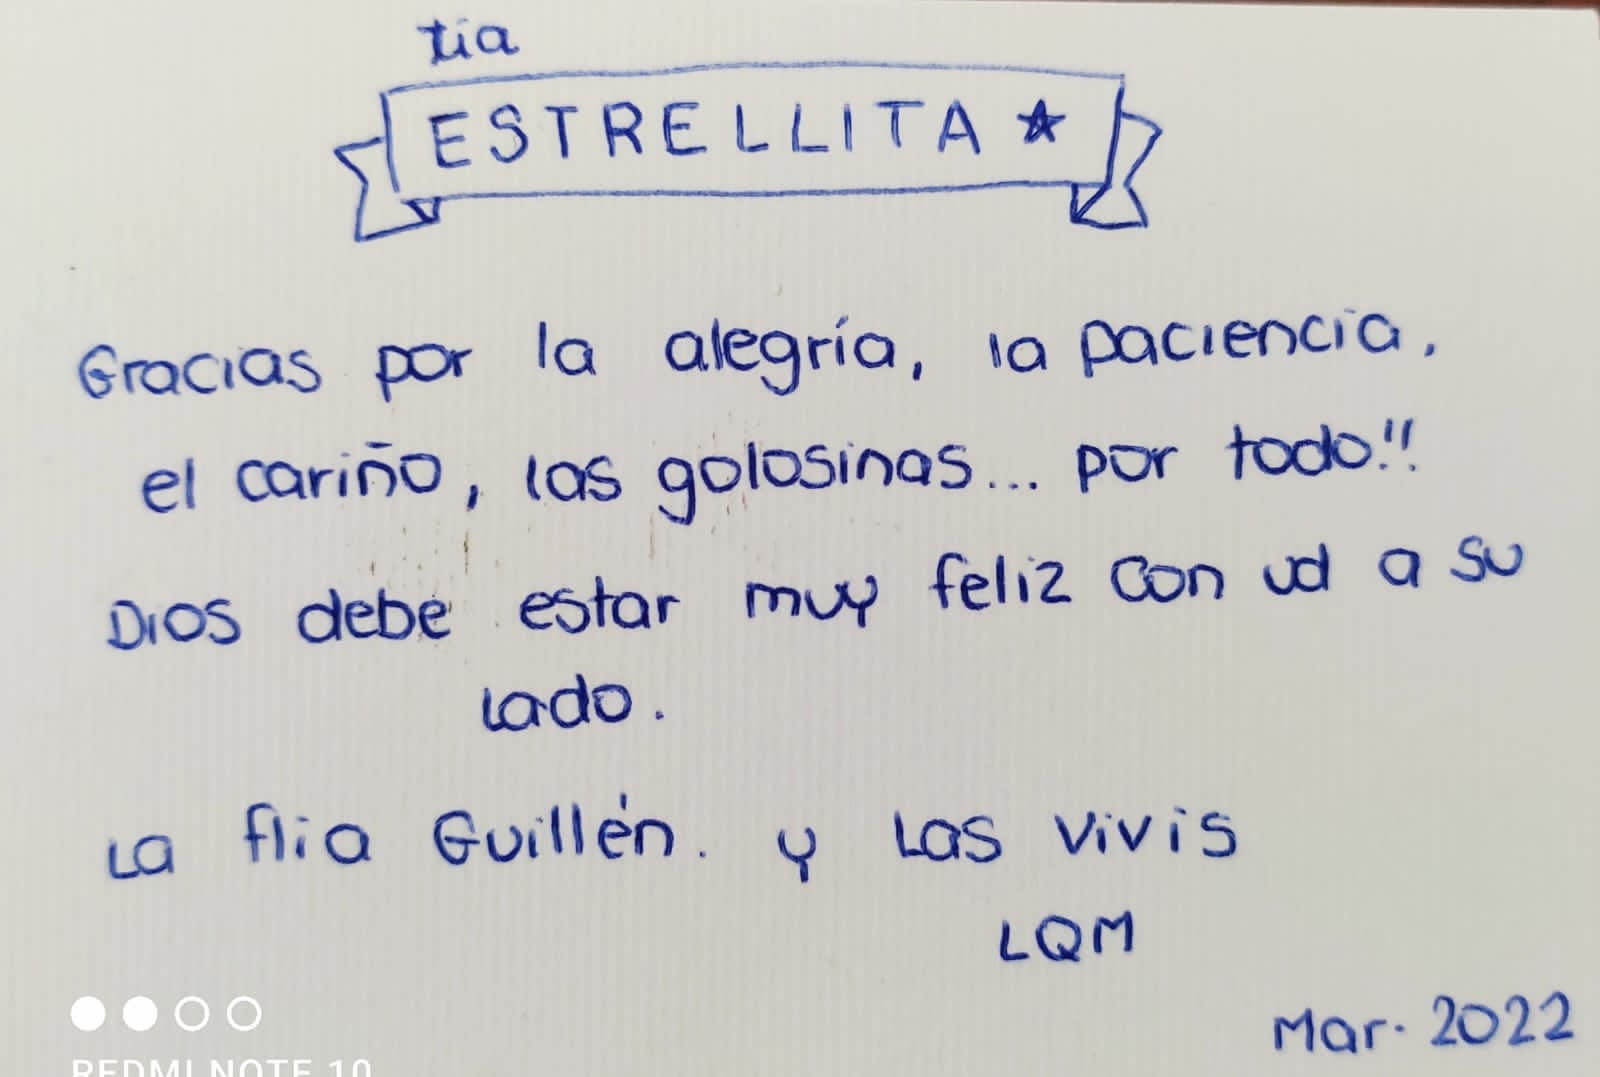 tia
ESTRELLITA
Gracias por la alegría, la paciencia,
el cariño, las golosinas... por todo!!
Dios debe estar muy feliz con ud a su
lado.
La flia Guillén. y Las Vivis
LQM
Mar. 2022
REDMI NOTE 10